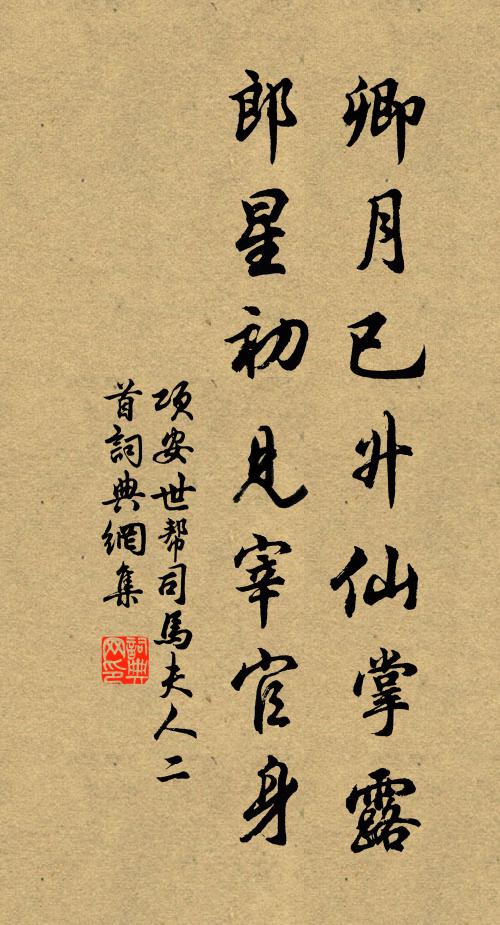 卿月已升仙掌露
郎星初見宰官身
项安世帮司馬夫人二
首詞典網集
詞典
网印